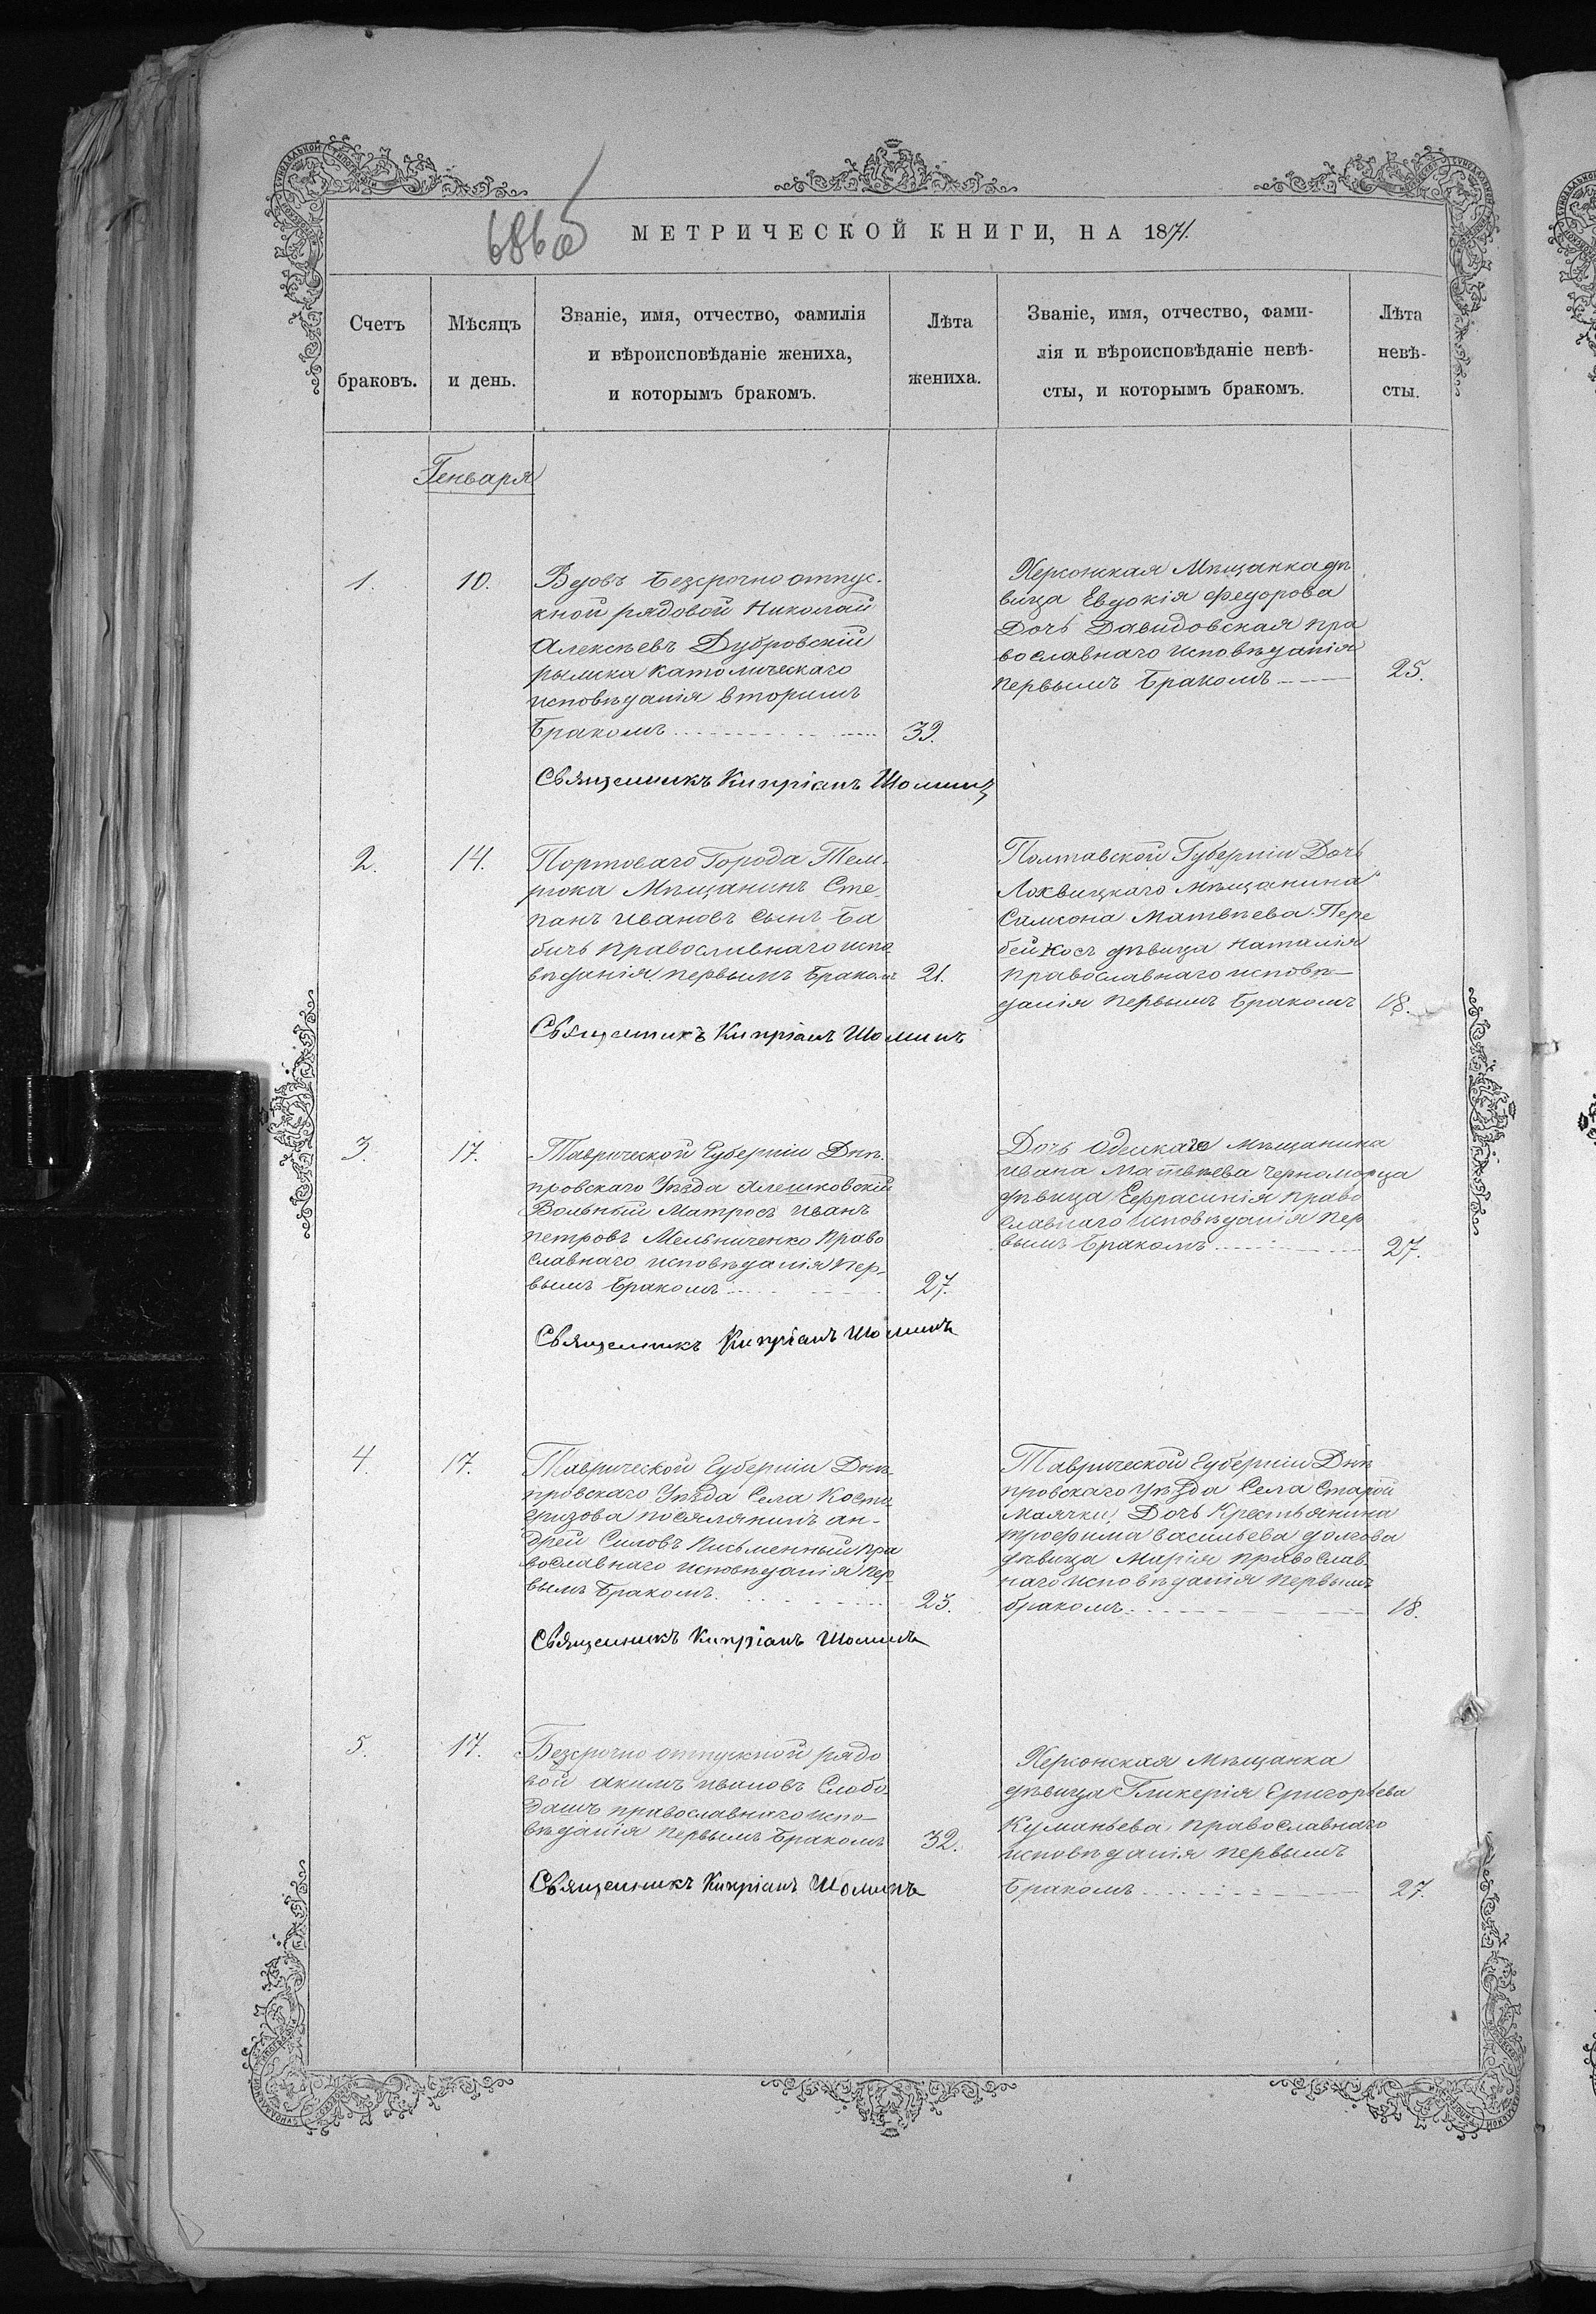 686об
МЕТРИЧЕСКОЙ КНИГИ, НА 1871.
Счетъ
браковъ.
Мѣсяцъ
и день.
Званіе, имя, отчество, фамилія
и вѣроисповѣданіе жениха,
и которымъ бракомъ.
Лѣта
жениха.
Званіе, имя, отчество, фами-
лія и вѣроисповѣданіе невѣ-
сты, и которымъ бракомъ.
Лѣта
невѣ-
сты.
Генваря
1.
10.
Вдовъ безсрочно отпус-
кной рядовой Николай
Алексѣевъ Дубровскій
рымска католическаго
исповѣданія вторымъ
бракомъ
39.
Священникъ Кипріанъ Шоминъ
Херсонская Мѣщанка дѣ
вица Евдокія Федорова
Дочь Давидовская пра
вославнаго исповѣданія
первымъ бракомъ
25.
2.
14.
Портоваго Города Тем-
рюка Мѣщанинъ Сте-
панъ Ивановъ сынъ Ба
бичъ православнаго испо
вѣданія первымъ бракомъ
21.
Священникъ Кипріанъ Шоминъ
Полтавской Губерніи Дочь
Лохвицкаго Мѣщанина
Самсона Матвѣева Пере
бейкосъ дѣвица Наталія
православнаго исповѣ-
данія первымъ бракомъ
18.
3.
17.
Таврической Губерніи Днѣ-
провскаго Уѣзда Алешковскій
Вольный Матросъ Иванъ
Петровъ Мельниченко право
славнаго исповѣданія пер-
вымъ бракомъ
27.
Священникъ Кипріанъ Шоминъ
Дочь Одескаго Мѣщанина
Ивана Матвѣева Черноморца
дѣвица Ефрасинія право
славнаго исповѣданія пер
вымъ бракомъ
27.
4.
17.
Таврической Губерніи Днѣ-
провскаго Уѣзда Села Косты
гризова поселянинъ Ан-
дрей Силовъ Письменный пра
вославнаго исповѣданія пер-
вымъ бракомъ
23.
Священникъ Кипріанъ Шоминъ
Таврической Губерніи Днѣ
провскаго Уѣзда Села Старой
Маячки Дочь Крестьянина
Трофима Васильева Долгова
дѣвица Марія православ-
наго исповѣданія первымъ
бракомъ
18.
5.
17.
Безсрочно отпускной рядо
вой Акимъ Ивановъ Слобо-
данъ православнаго испо-
вѣданія первымъ бракомъ
32.
Священникъ Кипріанъ Шоминъ
Херсонская Мѣщанка
дѣвица Гликерія Григорьева
Куманьева православнаго
исповѣданія первымъ
бракомъ
27.